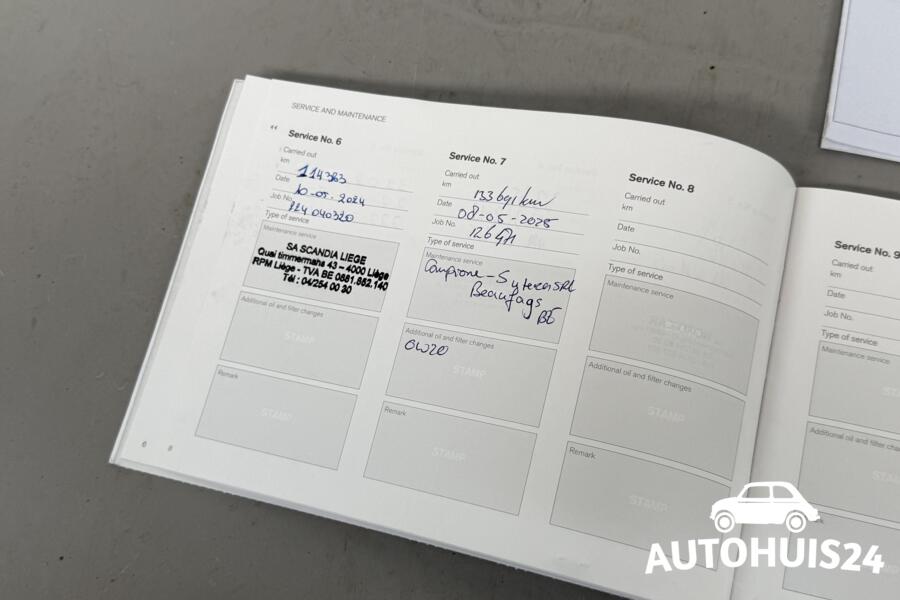 SERVICE AND MAINTENANCE
Service No. 6
Carried out
km
114383
Date
10-05-2024
Job No.
Type of service
Maintenance service
SA SCANDIA LIEGE
Quai timmermans 43 - 4000 Liège
RPM Liège - TVA BE 0881.882.140
Tél : 04/254 00 30
Additional oil and filter changes
STAMP
Remark
STAMP
6
8
Service No. 7
Carried out
km
Date
08-05-2025
Job No.
Type of service
Maintenance service
Campione -
BE
Additional oil and filter changes
0W20
STAMP
Remark
STAMP
Service No. 8
Carried out
km
Date
Job No.
Type of service
Maintenance service
Additional oil and filter changes
STAMP
Remark
STAMP
Service No. 9
Carried out
km
Date
Job No.
Type of service
Maintenance service
Additional oil and filter
AUTOHUIS24